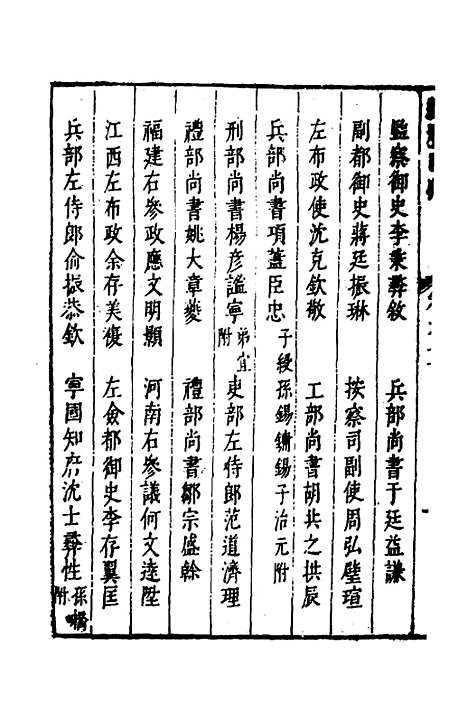 監察御史李秉彝敘　兵部尚書于廷益謙
副都御史蔣廷振琳　按察司副使周弘璧瑄
左布政使沈克欽敬　工部尚書胡共之拱辰
兵部尚書項藎臣忠 子綬孫錫鏞錫子治元附
刑部尚書楊彦謐寧 弟宜附　吏部左侍郎范道濟理
禮部尚書姚大章夔　禮部尚書鄒宗盛榦
福建右參政應文明顥　河南右參議何文逵陞
江西左布政余存美復　左僉都御史李存翼匡
兵部左侍郎俞振恭欽　寧國知府沈士彝性 孫橋附